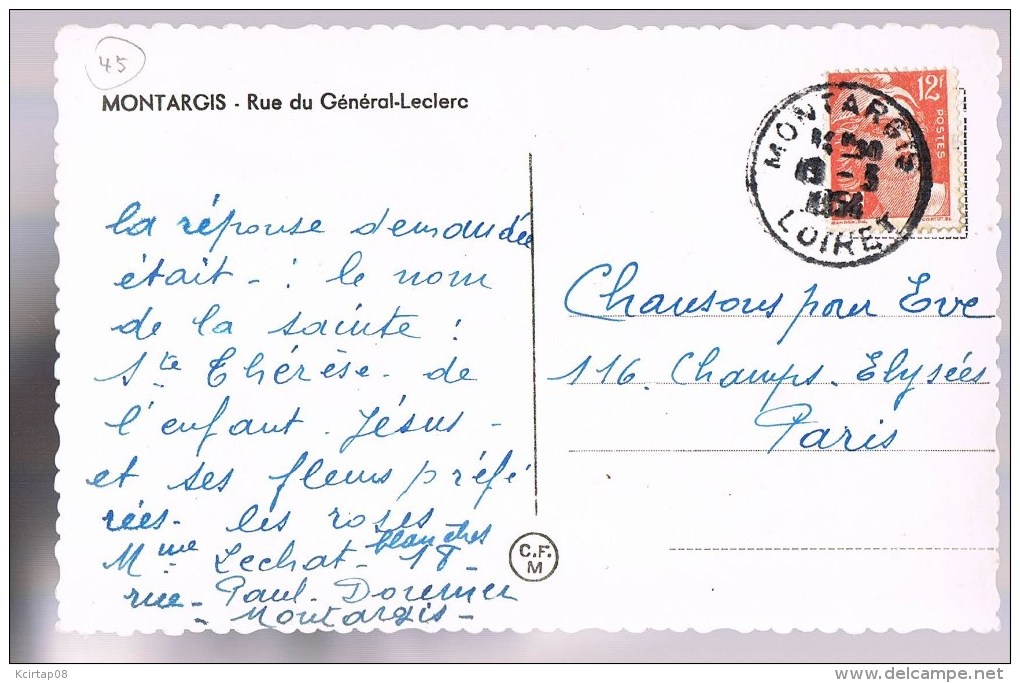 45
MONTARGIS - Rue du Général-Leclerc
12F
POSTES
MONTARGIS
1954
LOIRET
la réponse demandée
était - : le nom
de la sainte :
Ste Thérèse - de
l'enfant Jésus -
et ses fleurs préfé
rées - les roses
blanches
Mme Lechat - 18 -
rue - Paul Doumer
Montargis -
Chansons pour Eve
116 Champs Elysées
Paris
C.F.
M
Kcirtap08
delcampe.net